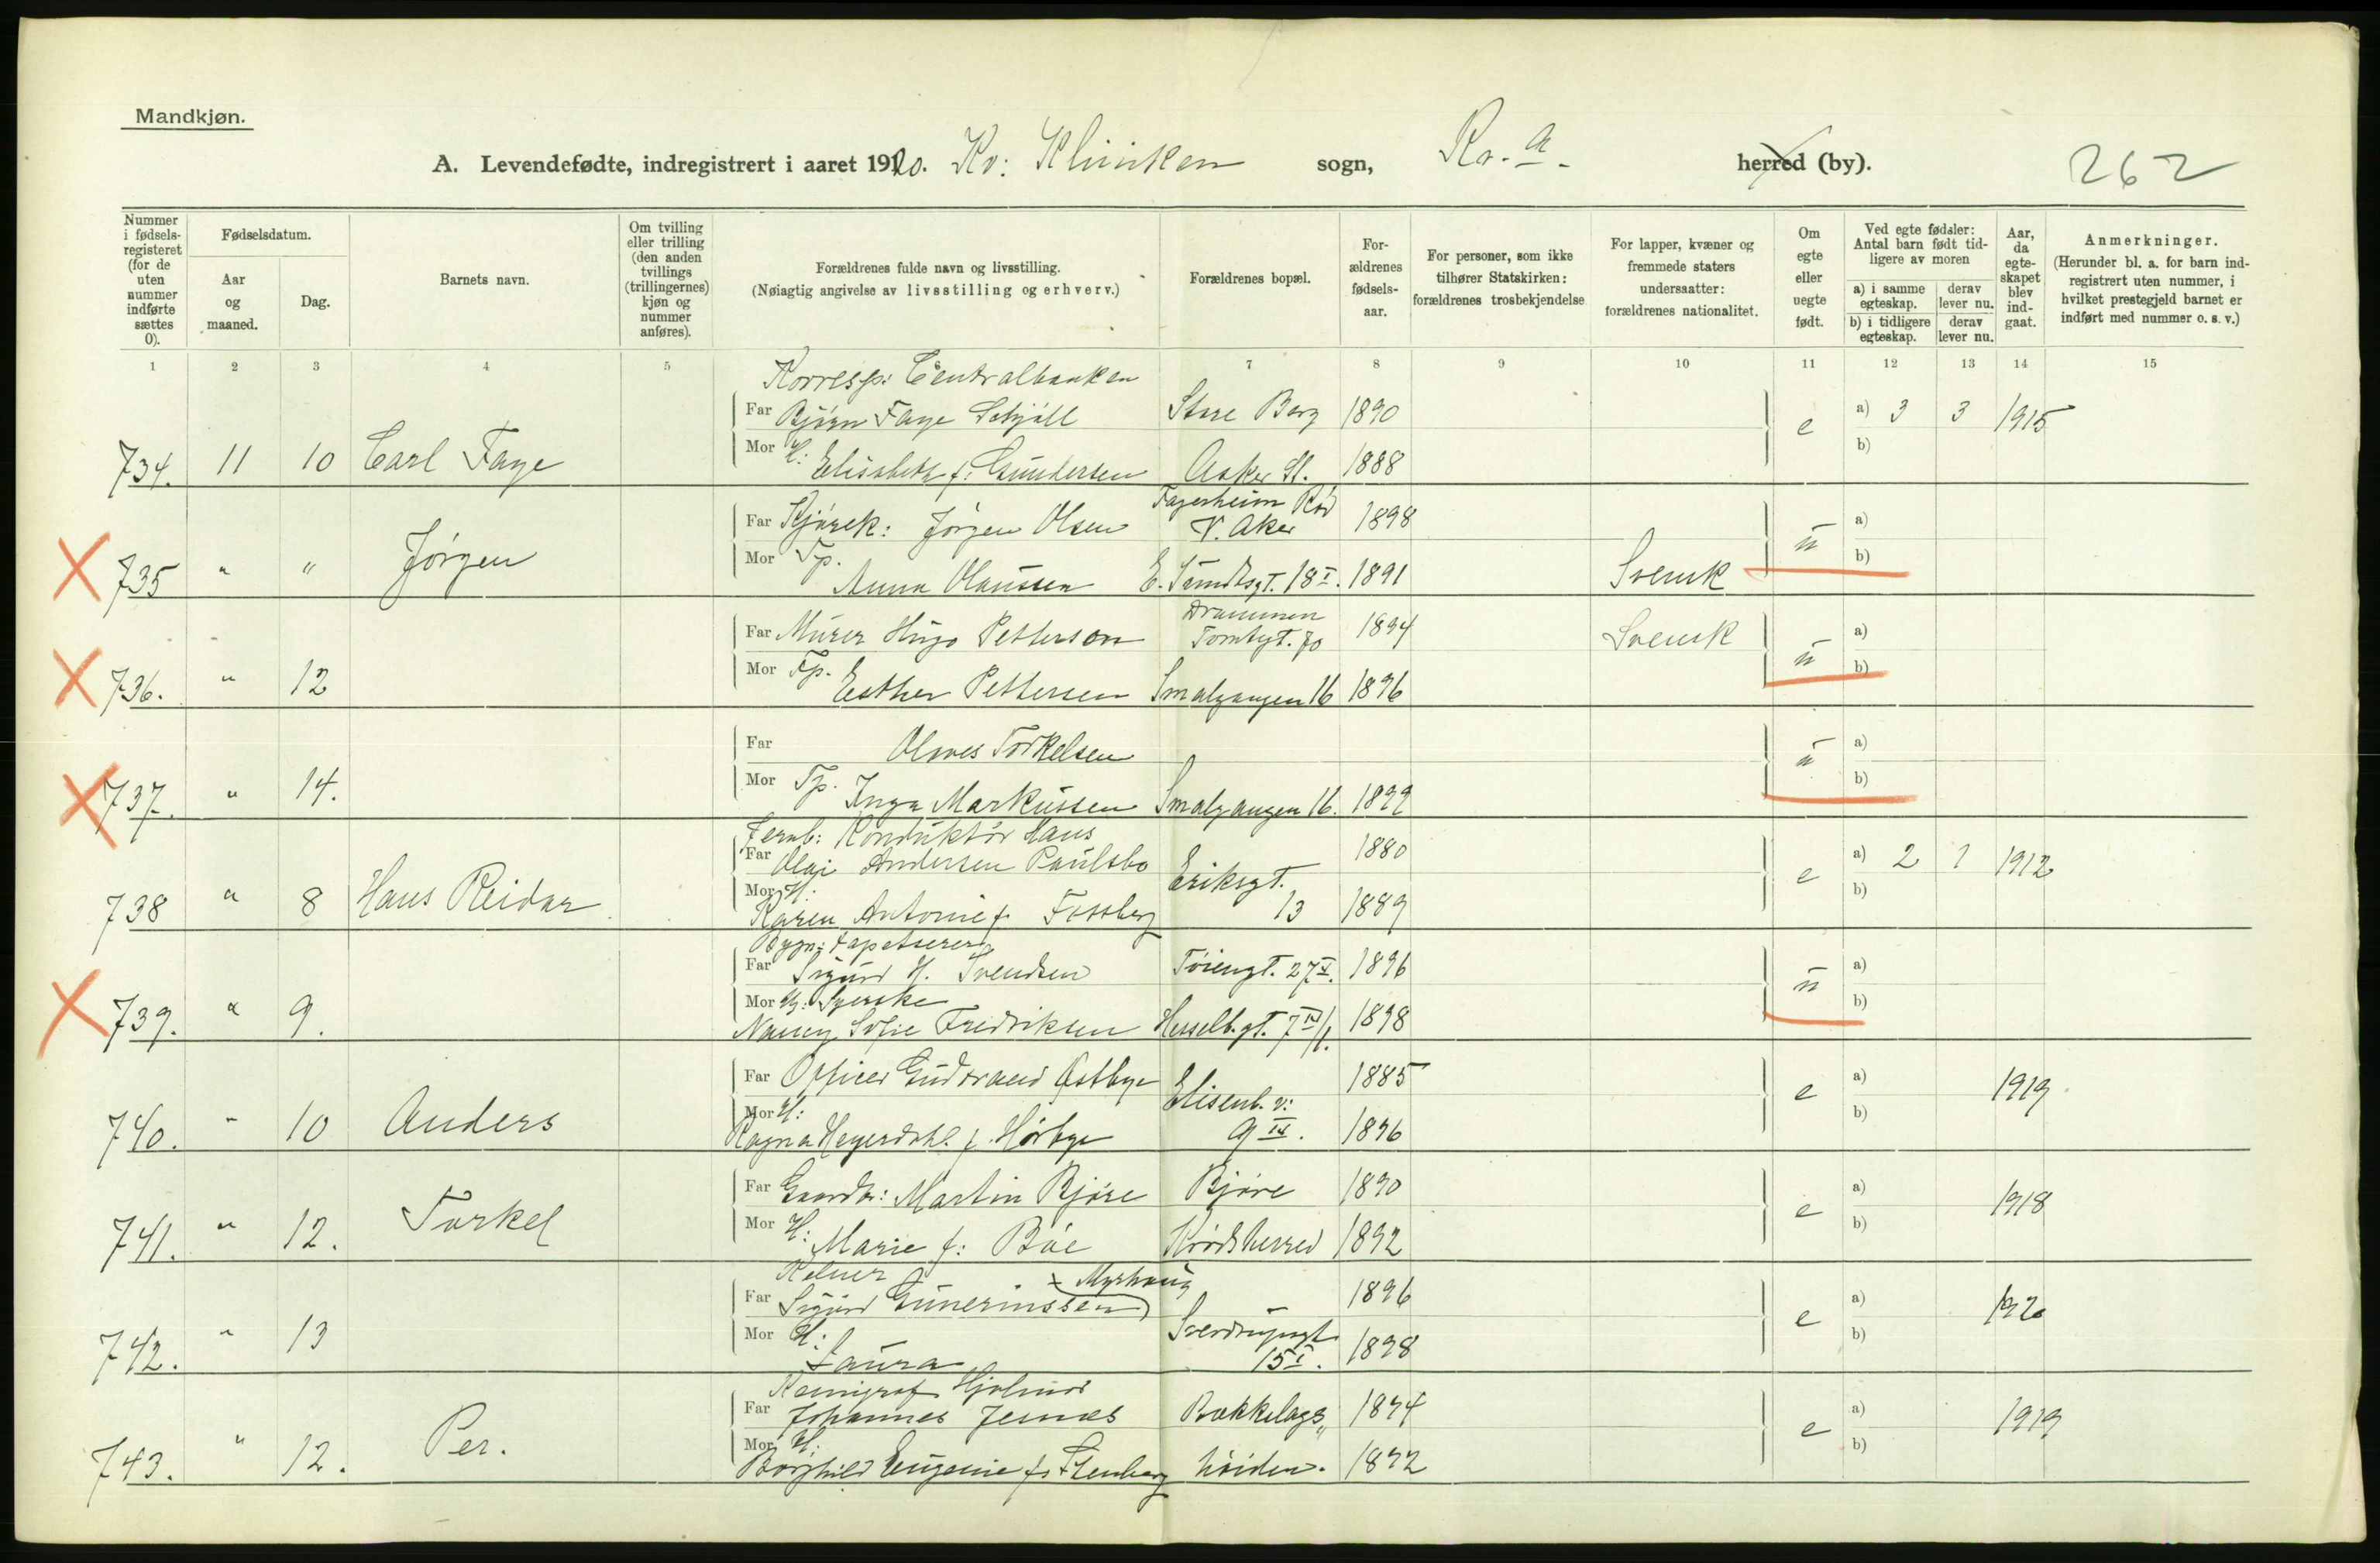 Mandkjøn.
A. Levendefødte, indregistrert i aaret 1920. Kv: Klinikken sogn, Kr.a. herred (by). 262
Nummer i fødsels-registeret (for de uten nummer indførte sættes 0).
Fødselsdatum.
Aar og maaned.
Dag.
Barnets navn.
Om tvilling eller trilling (den anden tvillings (trillingernes) kjøn og nummer anføres).
Forældrenes fulde navn og livsstilling.
(Nøiagtig angivelse av livsstilling og erhverv.)
Forældrenes bopæl.
For-ældrenes fødsels-aar.
For personer, som ikke tilhører Statskirken: forældrenes trosbekjendelse
For lapper, kvæner og fremmede staters undersaatter: forældrenes nationalitet.
Om egte eller uegte født.
Ved egte fødsler: Antal barn født tid-ligere av moren
a) i samme egteskap. derav lever nu.
b) i tidligere egteskap. derav lever nu.
Aar, da egte-skapet blev ind-gaat.
Anmerkninger.
(Herunder bl. a. for barn ind-registrert uten nummer, i hvilket prestegjeld barnet er indført med nummer o. s. v.)
1 2 3 4 5 7 8 9 10 11 12 13 14 15
Korresp: Centralbanken
Far Bjørn Faye Schjøll Store Berg 1890 e a) 3 3 1915
734. 11 10 Carl Faye Mor H: Elisabeth f: Gundersen Asker St. 1888 b)
Fagerheim
Far Kjørek: Jørgen Olsen V. Aker 1898 u a)
735 " " Jørgen Mor Tp. Anna Olaussen E. Sundtsgt. 18 I. 1891 Svensk b)
Drammen
Far Murer Hugo Petterson Tomtegt. 70 1894 Svensk u a)
736. " 12 Mor Tp. Esther Pettersen Smalgangen 16 1896 b)
Far Torkelsen u a)
737. " 14. Mor Tp. Inga Markussen Smalgangen 16. 1899 b)
Jernb: Konduktør Hans
Far Olai Andersen Paulsbo Eriksgt. 1880 e a) 2 1 1912
738 " 8 Hans Reidar Mor H. Karen Antonie f. Fossberg 13 1889 b)
Bygn: tapetserer
Far Sigurd H. Svendsen Tøiengt. 27 V. 1896 u a)
Mor Syerske
739. " 9. Nancy Sofie Fredriksen Hesselb.gt. 7 IV/1. 1898 b)
Far Officer Gudbrand Østbye Elisenb. v: 1885 e a) 1919
740. " 10 Anders Mor H: Ragna Heyerdahl f. Hørbye 9 III. 1896 b)
Far Gaardbr: Martin Bjøre Bjøre 1890 e a) 1918
741. " 12. Torkel Mor H: Marie f: Bøe Krødsherred 1892 b)
Kelner x Myrhaug
Far Sigurd Gunerinssen) Sverdrupsgt. 1896 e a) 1920
742. " 13 Mor H: Laura 15 I. 1898 b)
Kemigraf Hjalmar
Far Johannes Jesnæs Bækkelags, 1894 e a) 1919
743. " 12. Per. Mor H: Borghild Eugenie f: Stenberg høiden. 1892 b)